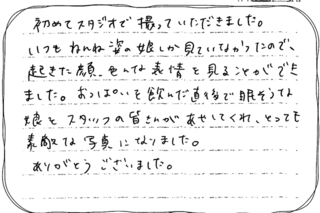 初めてスタジオで撮っていただきました。
いつもねんね姿の娘しか見ていなかったので、
起きた顔、色んな表情を見ることができ
ました。おっぱいを飲んだ直後で眠そうな
娘をスタッフの皆さんがあやしてくれ、とっても
素敵な写真になりました。
ありがとうございました。